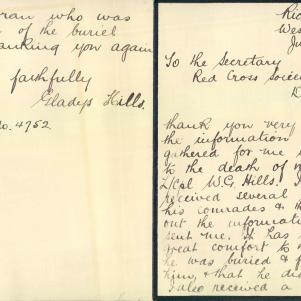 ran who was
of the buriel
anking you again
faithfully
Gladys Hills.
No. 4752
Ric
Wes
Ju
To the Secretary
Red Cross Socie
D
thank you very
the information
gathered for me
to the death of m
L/Cpl W.G. Hills. I
received several
his comrades & th
out the informati
sent me. It has
great comfort to
he was buried & f
him, & that he di
I also received a